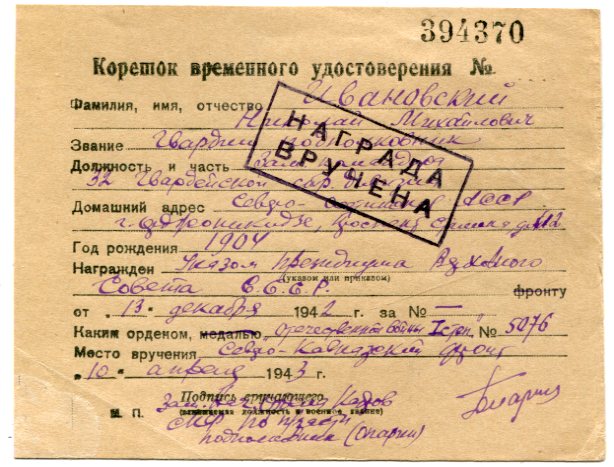 394370
Корешок временного удостоверения №
Фамилия, имя, отчество Ивановский
Николай Михайлович
НАГРАДА
ВРУЧЕНА
Звание Гвардии подполковник
Должность и часть Зам. командира
32 Гвардейской
Домашний адрес Северо-
г. Орджоникидзе,
Год рождения 1904
Награжден Указом Президиума Верховного
(указом или приказом)
Совета С.С.С.Р. фронту
от „13" декабря 1942 г. за № —
Каким орденом, медалью „Отечественной войны I степ." № 5076
Место вручения Северо-Кавказский фронт
„10" апреля 1943 г.
Подпись вручающего
М. П. (занимаемая должность и военное звание)
Кадров
СКФ по
подполковник (Опарин)